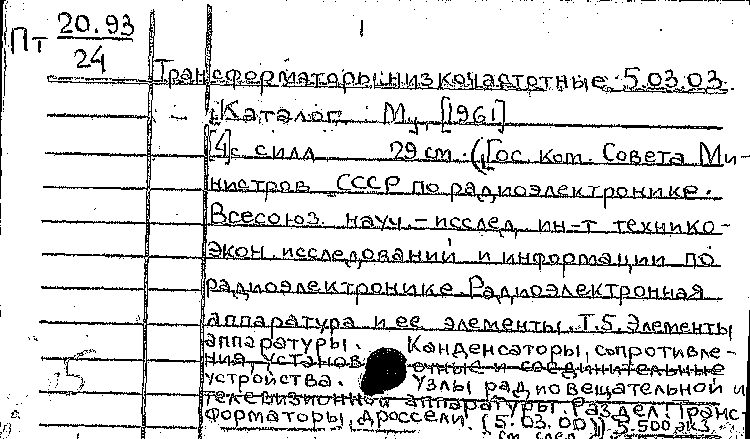 Пт 20.93
24
1
Трансформаторы низкочастотные 5.03.03.
Каталог М., [1961]
[4] с. илл 29 см. (Гос. ком. Совета Ми-
нистров СССР по радиоэлектронике.
Всесоюз. науч.-исслед. ин-т технико-
экон. исследований и информации по
радиоэлектронике. Радиоэлектронная
аппаратура и ее элементы. Т.5. Элементы
аппаратуры. Канденсаторы, сопротивле-
ния, установочные и соединительные
устройства. Узлы радиовещательной и
телевизионной аппаратуры. Раздел: Транс-
форматоры, дроссели. (5.03.00)) 5.500 экз.
см. след.
5